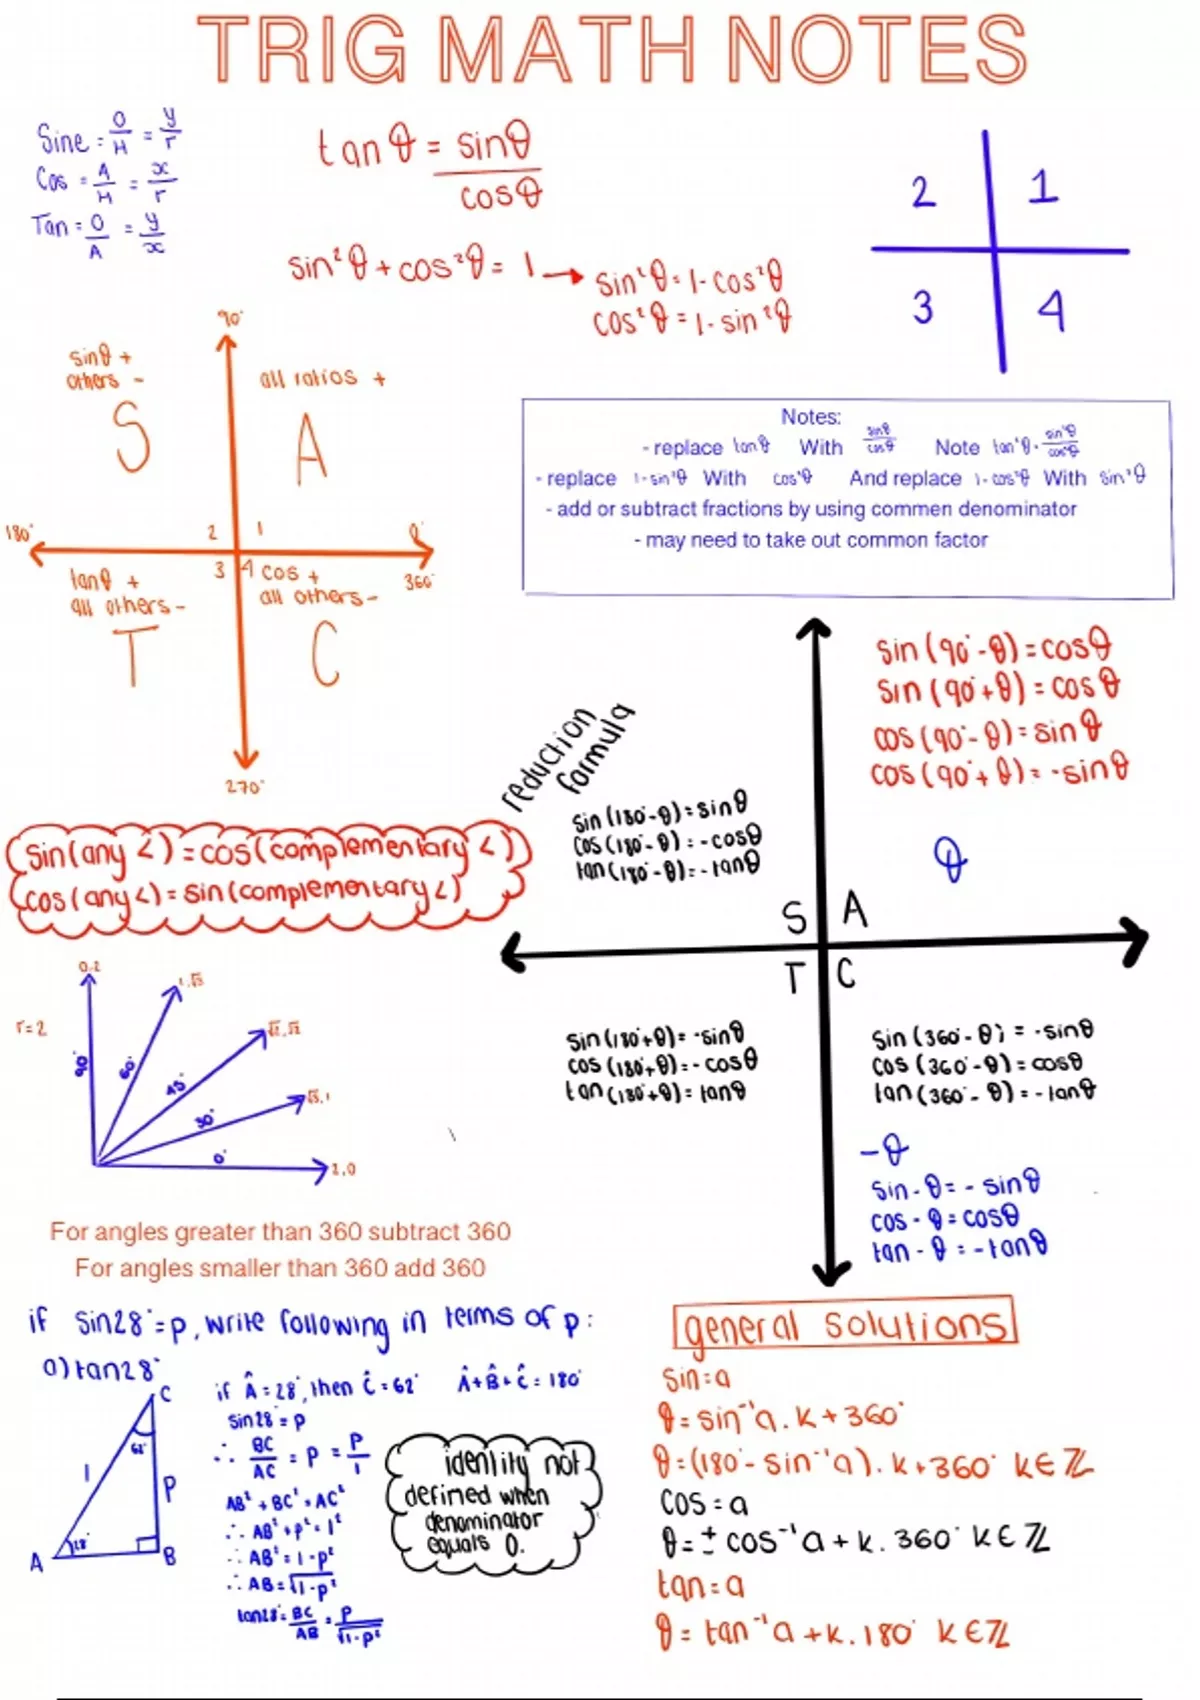 TRIG MATH NOTES
Sine = O/H = y/r
Cos = A/H = x/r
Tan = O/A = y/x
tanθ = sinθ/cosθ
sin²θ + cos²θ = 1 → sin²θ = 1 - cos²θ
cos²θ = 1 - sin²θ
2 1
3 4
90°
sinθ +
others -
S
all ratios +
A
180° 2 1 0°
3 4 360°
tanθ +
all others -
T
cos +
all others -
C
270°
Notes:
- replace tanθ With sinθ/cosθ Note tan²θ = sin²θ/cos²θ
- replace 1-sin²θ With cos²θ And replace 1-cos²θ With sin²θ
- add or subtract fractions by using commen denominator
- may need to take out common factor
reduction formula
sin(90°-θ) = cosθ
sin(90°+θ) = cosθ
cos(90°-θ) = sinθ
cos(90°+θ) = -sinθ
sin(180°-θ) = sinθ
cos(180°-θ) = -cosθ
tan(180°-θ) = -tanθ
θ
S A
T C
sin(180°+θ) = -sinθ
cos(180°+θ) = -cosθ
tan(180°+θ) = tanθ
sin(360°-θ) = -sinθ
cos(360°-θ) = cosθ
tan(360°-θ) = -tanθ
-θ
sin-θ = -sinθ
cos-θ = cosθ
tan-θ = -tanθ
sin(any ∠) = cos(complementary ∠)
cos(any ∠) = sin(complementary ∠)
r=2
0,2
1,√3
√2,√2
√3,1
2,0
90°
60°
45°
30°
0°
For angles greater than 360 subtract 360
For angles smaller than 360 add 360
if sin28°=p, write following in terms of p:
a) tan28°
C
62°
1
P
A 28° B
if Â = 28°, then Ĉ = 62° Â+B̂+Ĉ = 180°
sin28° = p
∴ BC/AC = p = p/1
AB² + BC² = AC²
∴ AB² + p² = 1²
∴ AB² = 1-p²
∴ AB = √1-p²
tan28° = BC/AB = p/√1-p²
identity not
defined when
denominator
equals 0.
general solutions
sin=a
θ = sin⁻¹a . k + 360°
θ = (180° - sin⁻¹a) . k + 360° k∈ℤ
cos = a
θ = ± cos⁻¹a + k . 360° k∈ℤ
tan = a
θ = tan⁻¹a + k . 180° k∈ℤ